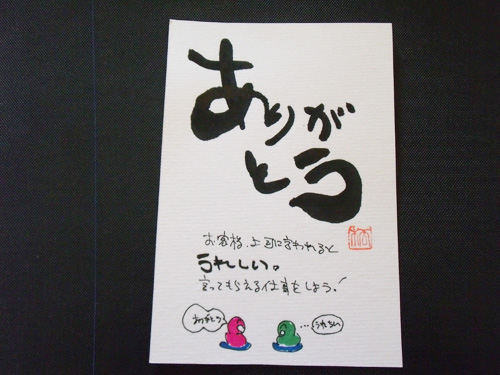 ありが
とう
お客様、上司に言われると
うれしい。
言ってもらえる仕事をしよう!
ありがとう
…うれちい